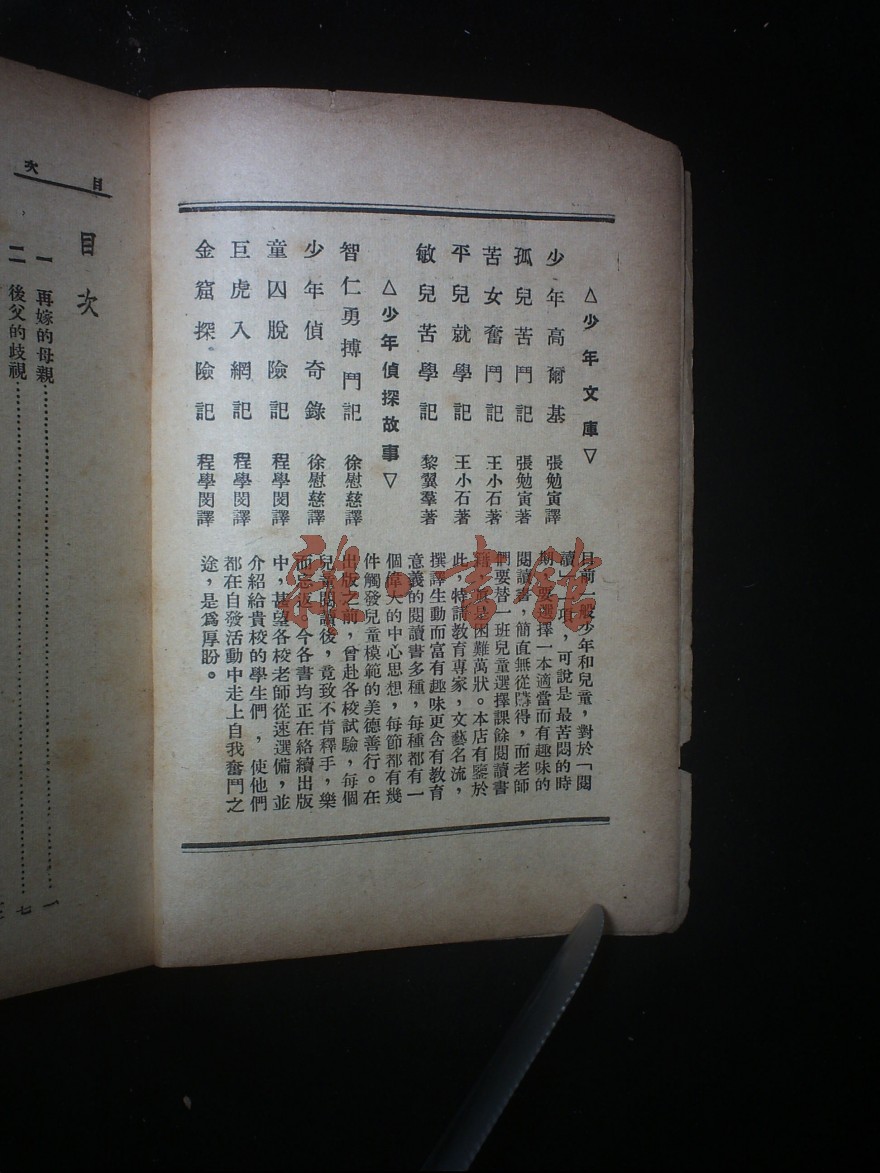 △少年文庫▽
少年高爾基 張勉寅譯
孤兒苦鬥記 張勉寅著
苦女奮鬥記 王小石著
平兒就學記 王小石著
敏兒苦學記 黎翼羣著
△少年偵探故事▽
智仁勇搏鬥記 徐慰慈譯
少年偵奇錄 徐慰慈譯
童囚脫險記 程學閔譯
巨虎入網記 程學閔譯
金窟探險記 程學閔譯
目前一般少年和兒童，對於「閱
讀」一項，可說是最苦悶的時
期，要選擇一本適當而有趣味的
閱讀書，簡直無從購得，而老師
們要替一班兒童選擇課餘閱讀書
籍，亦是困難萬狀。本店有鑒於
此，特請教育專家，文藝名流，
撰譯生動而富有趣味更含有教育
意義的閱讀書多種，每種都有一
個偉大的中心思想，每節都有幾
件觸發兒童模範的美德善行。在
出版之前，曾赴各校試驗，每個
兒童閱讀後，竟致不肯釋手，樂
而忘返。今各書均正在絡續出版
中，甚望各校老師從速選備，並
介紹給貴校的學生們，使他們
都在自發活動中走上自我奮鬥之
途，是爲厚盼。
目次
目次
一 再嫁的母親……………………一
二 後父的歧視……………………七
雜·書館